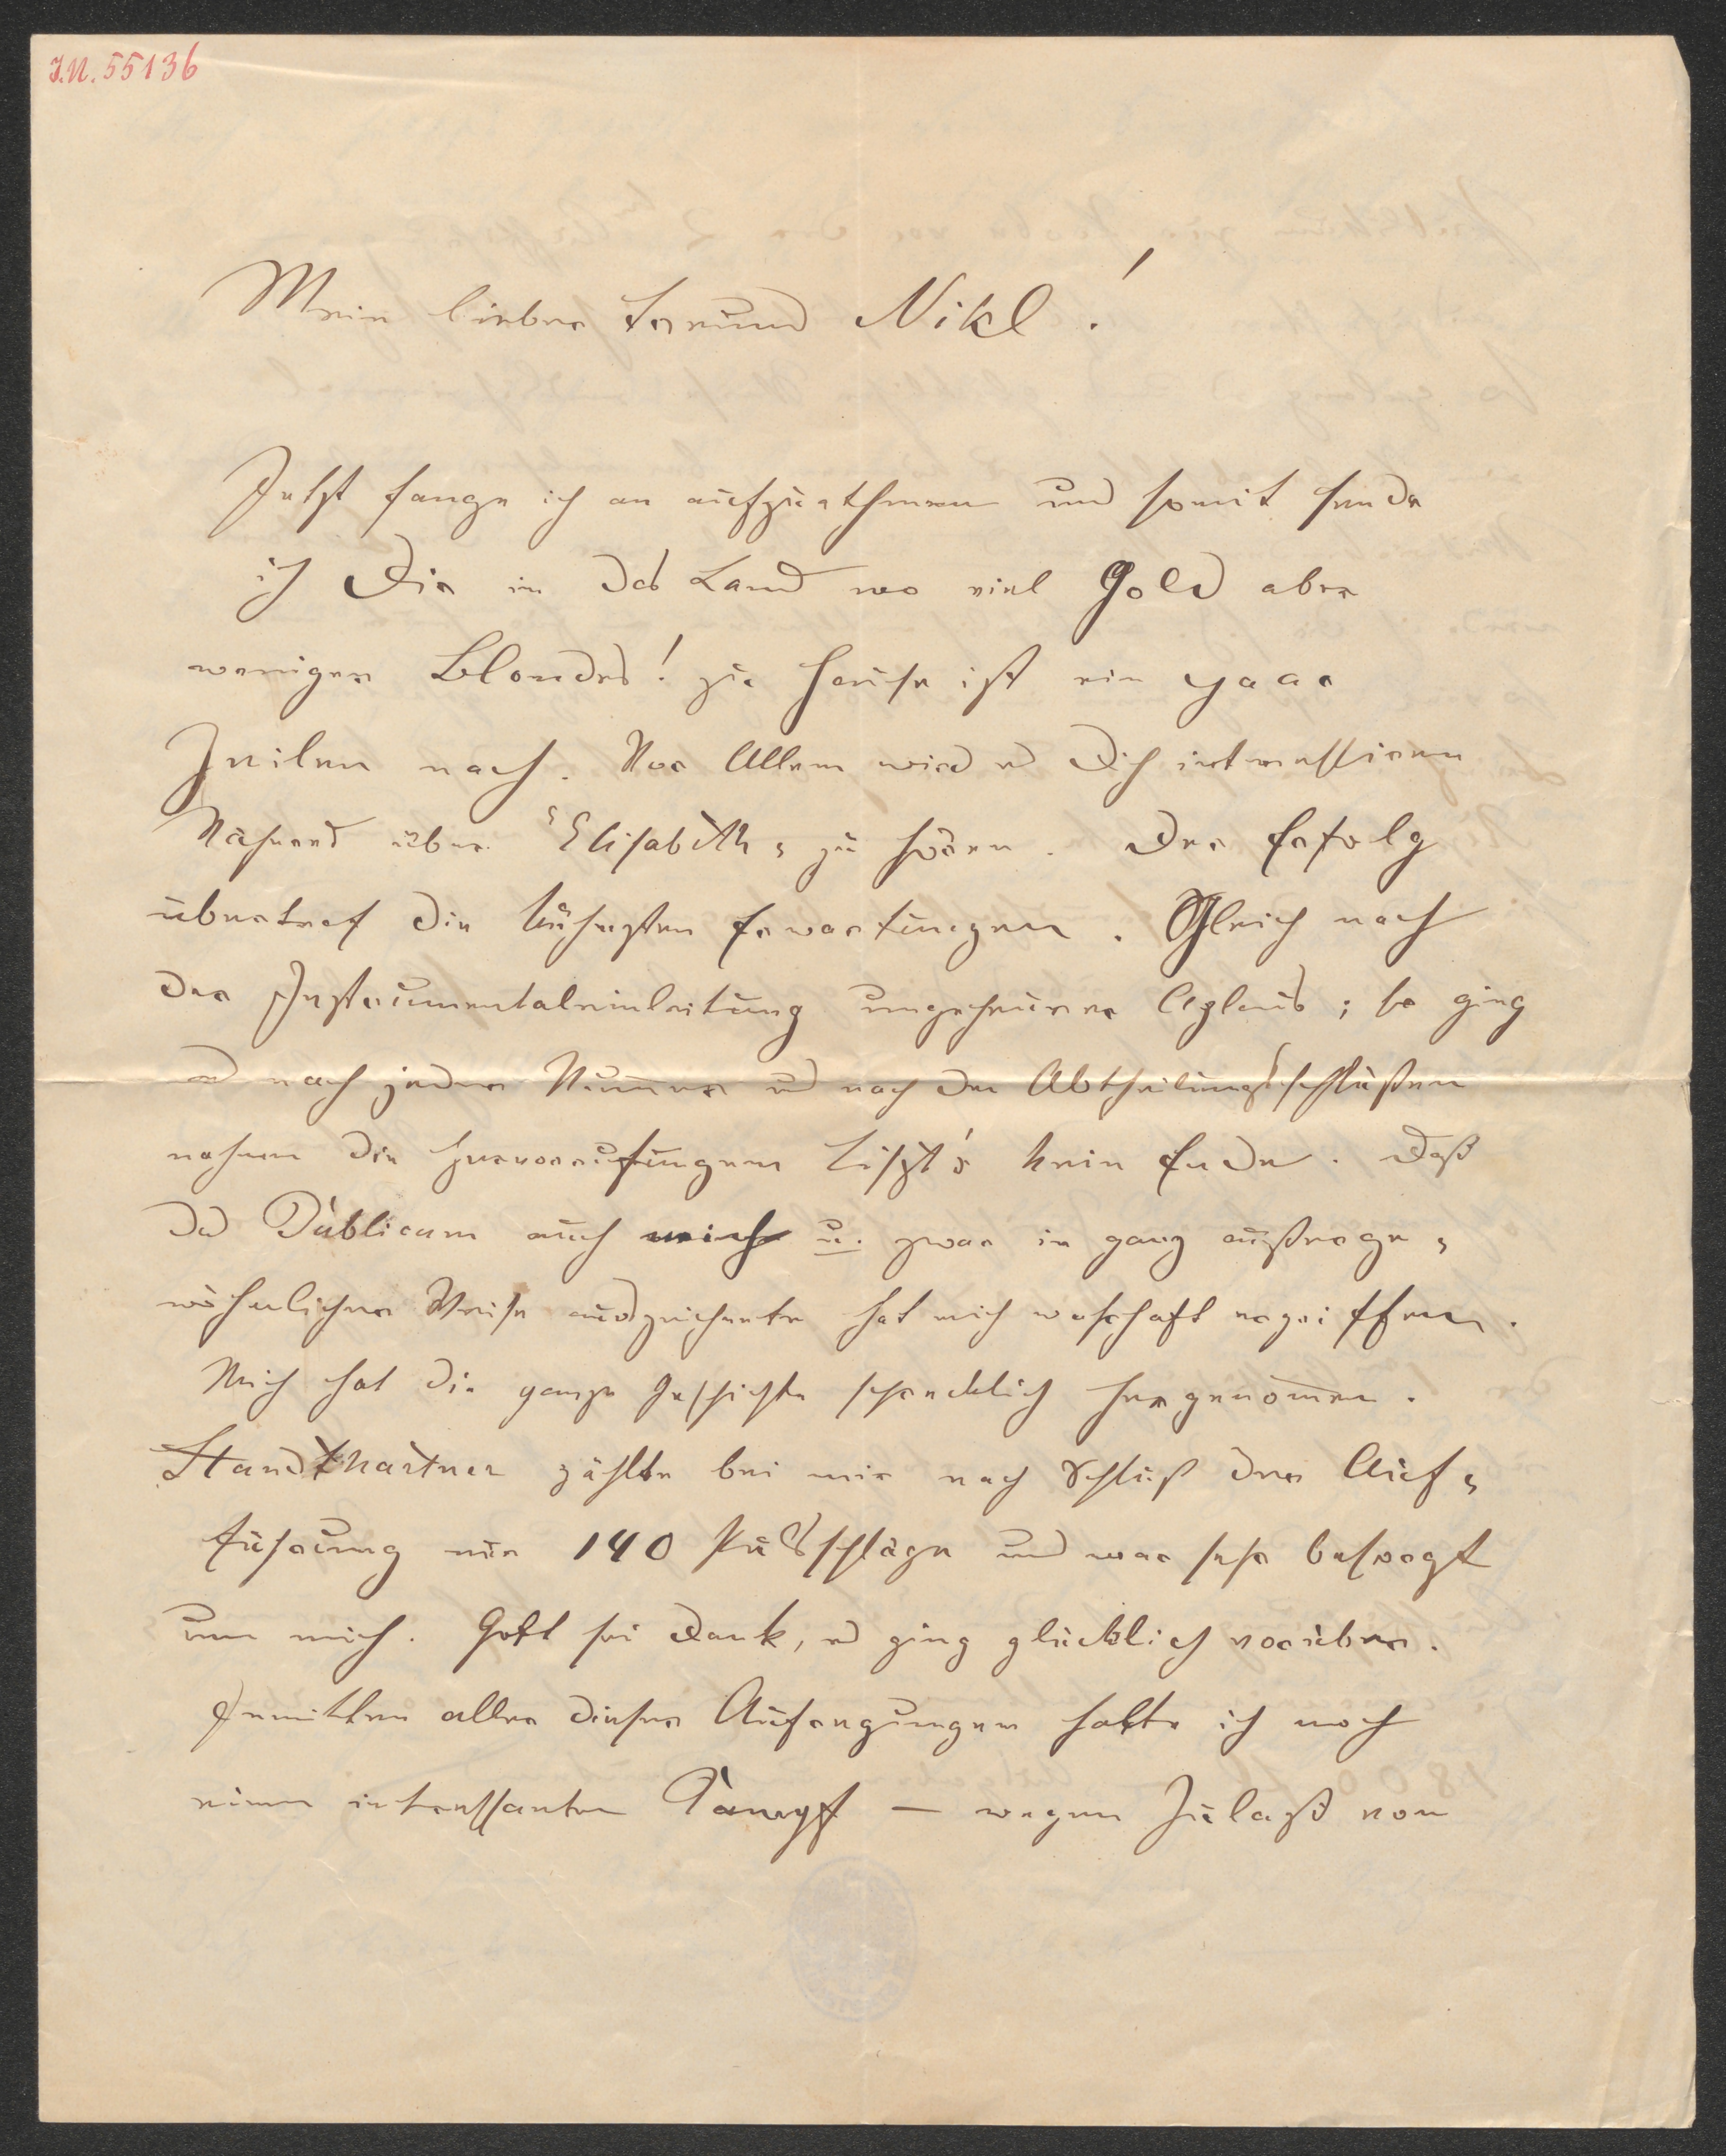 I.N. 55136
Mein lieber Freund Nikl!
Jetzt fange ich an aufzuathmen und somit sende
ich Dir in das Land wo viel Gold aber
weniger Blondes! zu Hause ist ein paar
Zeilen nach. Vor Allem wird es Dich interessiren
Näheres über "Elisabeth" zu hören. Der Erfolg
übertraf die kühnsten Erwartungen. Gleich nach
der Instrumentaleinleitung ungeheurer Aplaus; so ging
es nach jeder Numer und nach den Abtheilungsschlüßen
nahmen die Hervorrufungen Liszt's kein Ende. Daß
das Publicum auch mich u. zwar in ganz außerge-
wöhnlicher Weise auszeichnete hat mich wahrhaft ergriffen.
Mich hat die ganze Geschichte schrecklich hergenomen.
Standthartner zählte bei mir nach Schluß der Auf-
führung nur 140 Pulsschläge und war sehr besorgt
um mich. Gott sei Dank, es ging glücklich vorüber.
Inmitten aller dieser Aufregungen hatte ich noch
einen intressanten Kampf — wegen Zulaß von